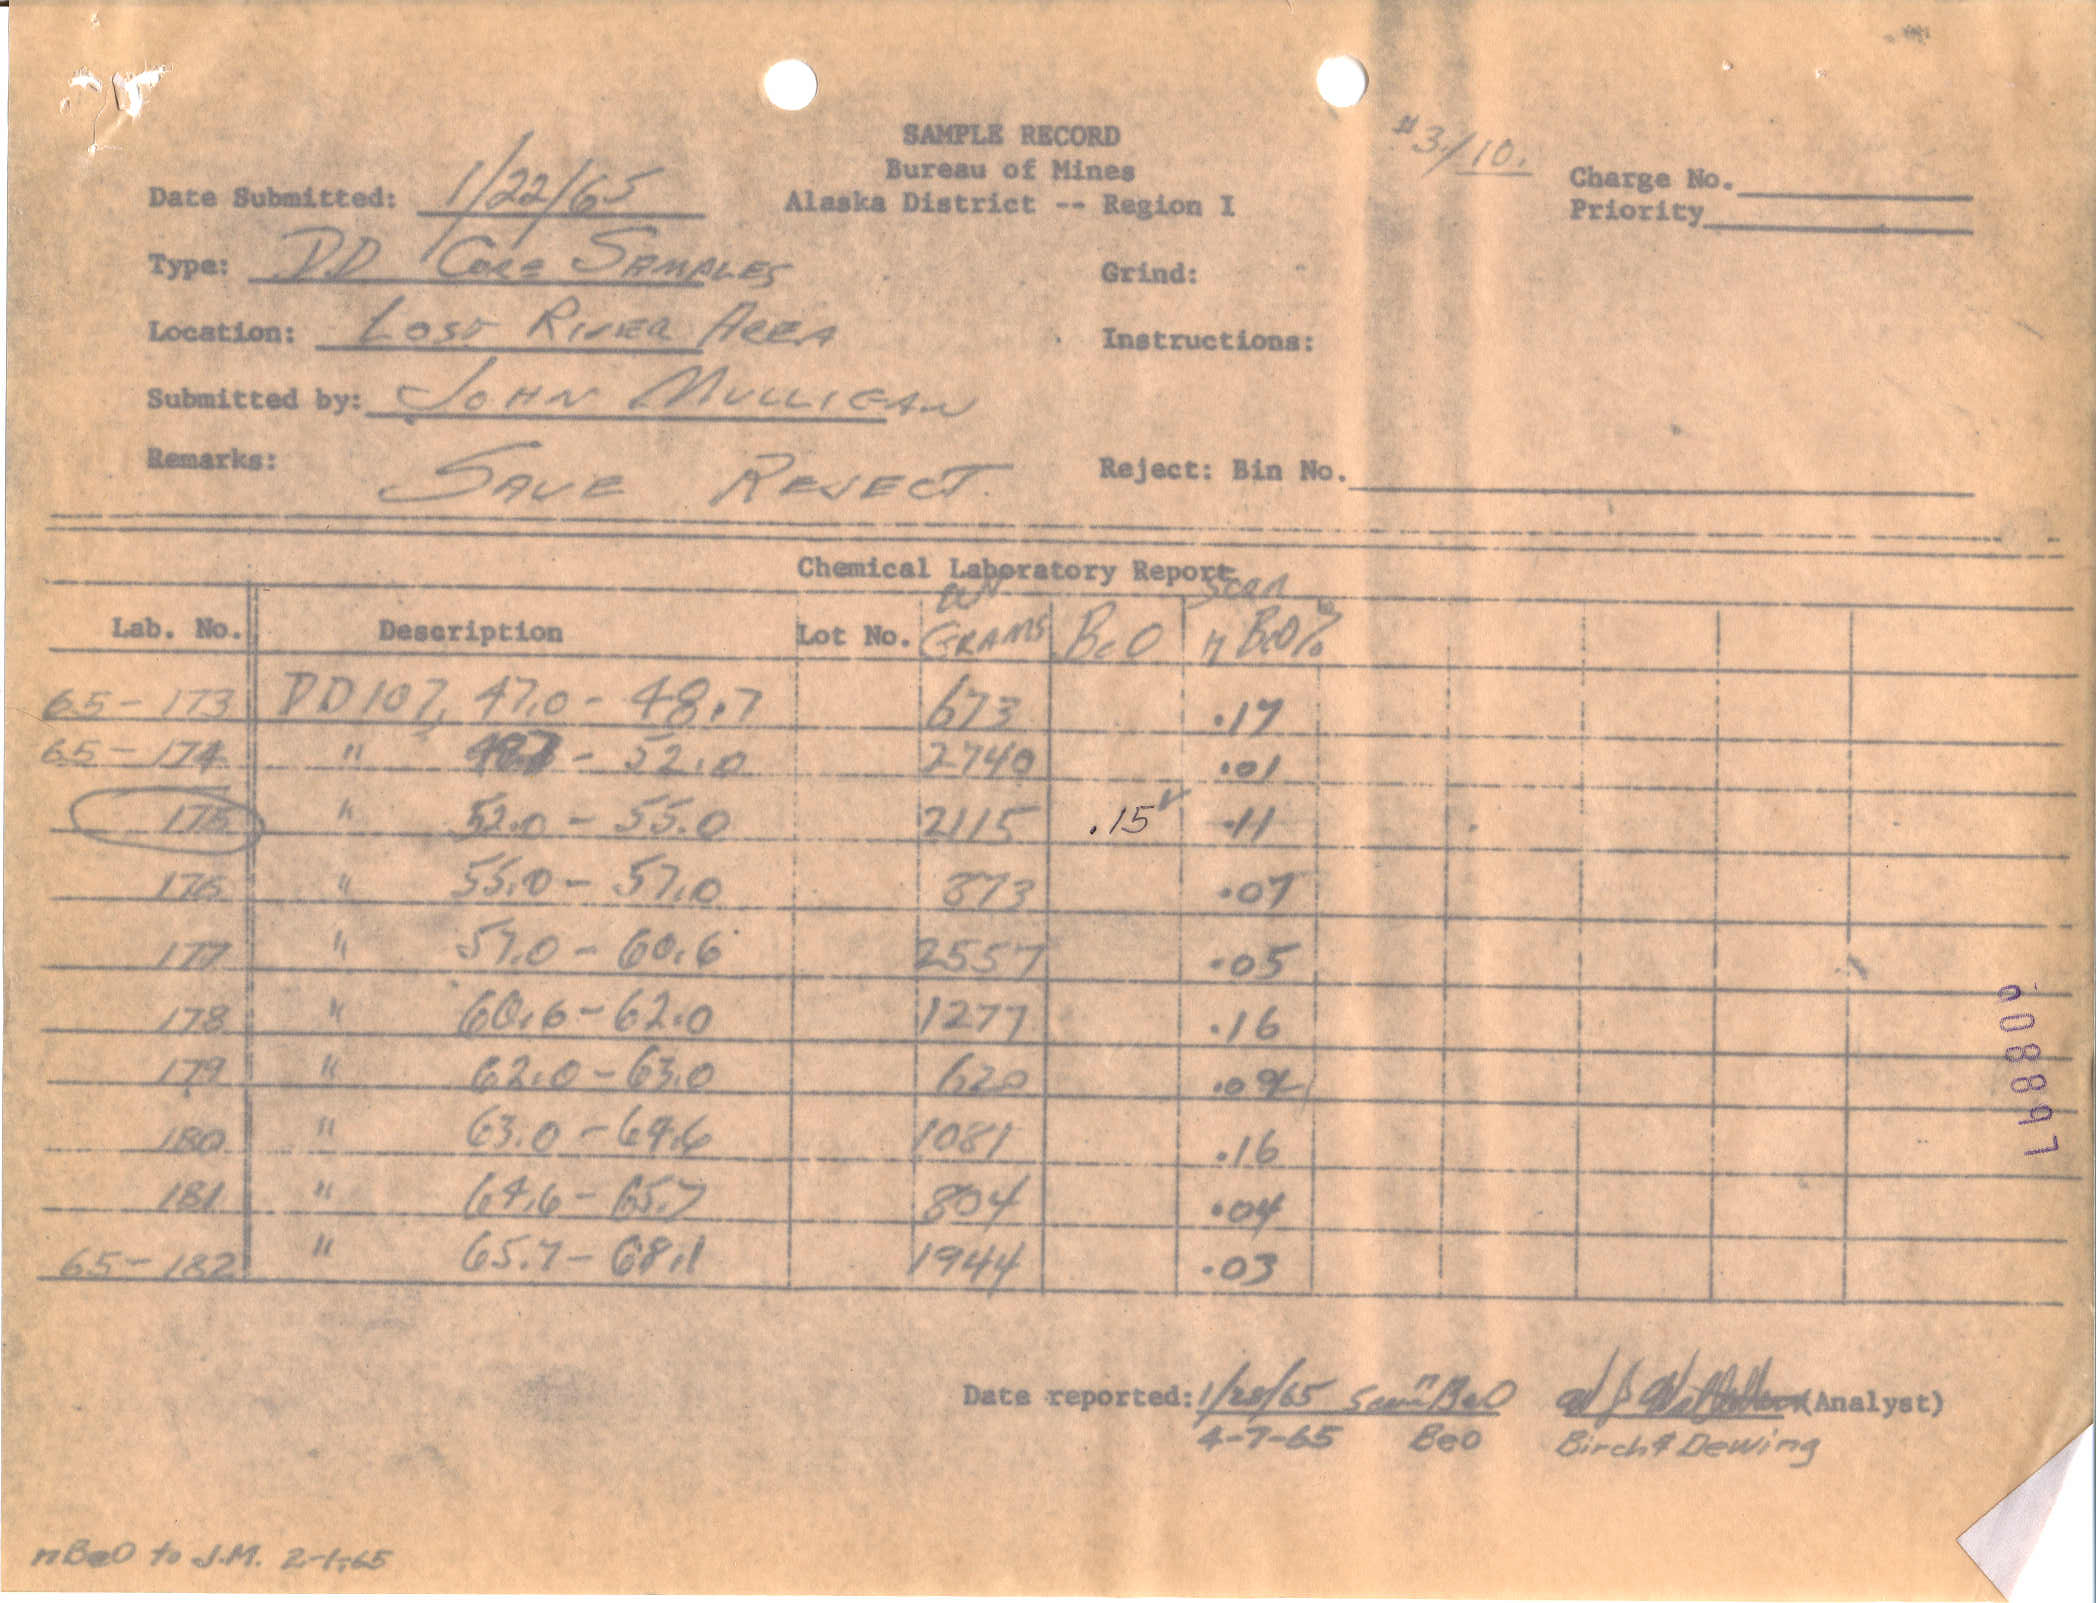 SAMPLE RECORD
Bureau of Mines
Alaska District -- Region I
#3/10.
Charge No.
Priority
Date Submitted: 1/22/65
Type: DD Core Samples
Grind:
Location: Lost River Area
Instructions:
Submitted by: John Mulligan
Remarks: Save Reject.
Reject: Bin No.
Chemical Laboratory Report
Lab. No. Description Lot No. Grams BeO Scan n BeO%
65-173 DD107, 47.0 - 48.7 673 .17
65-174 " 48.7 - 52.0 2740 .01
175 " 52.0 - 55.0 2115 .15✓ .11
176 " 55.0 - 57.0 873 .07
177 " 57.0 - 60.6 2557 .05
178 " 60.6 - 62.0 1277 .16
179 " 62.0 - 63.0 620 .09
180 " 63.0 - 64.6 1081 .16
181 " 64.6 - 65.7 804 .04
65-182 " 65.7 - 68.1 1944 .03
Date reported: 1/28/65 Scan n BeO (Analyst)
4-7-65 BeO Birch & Dewing
nBeO to J.M. 2-1-65